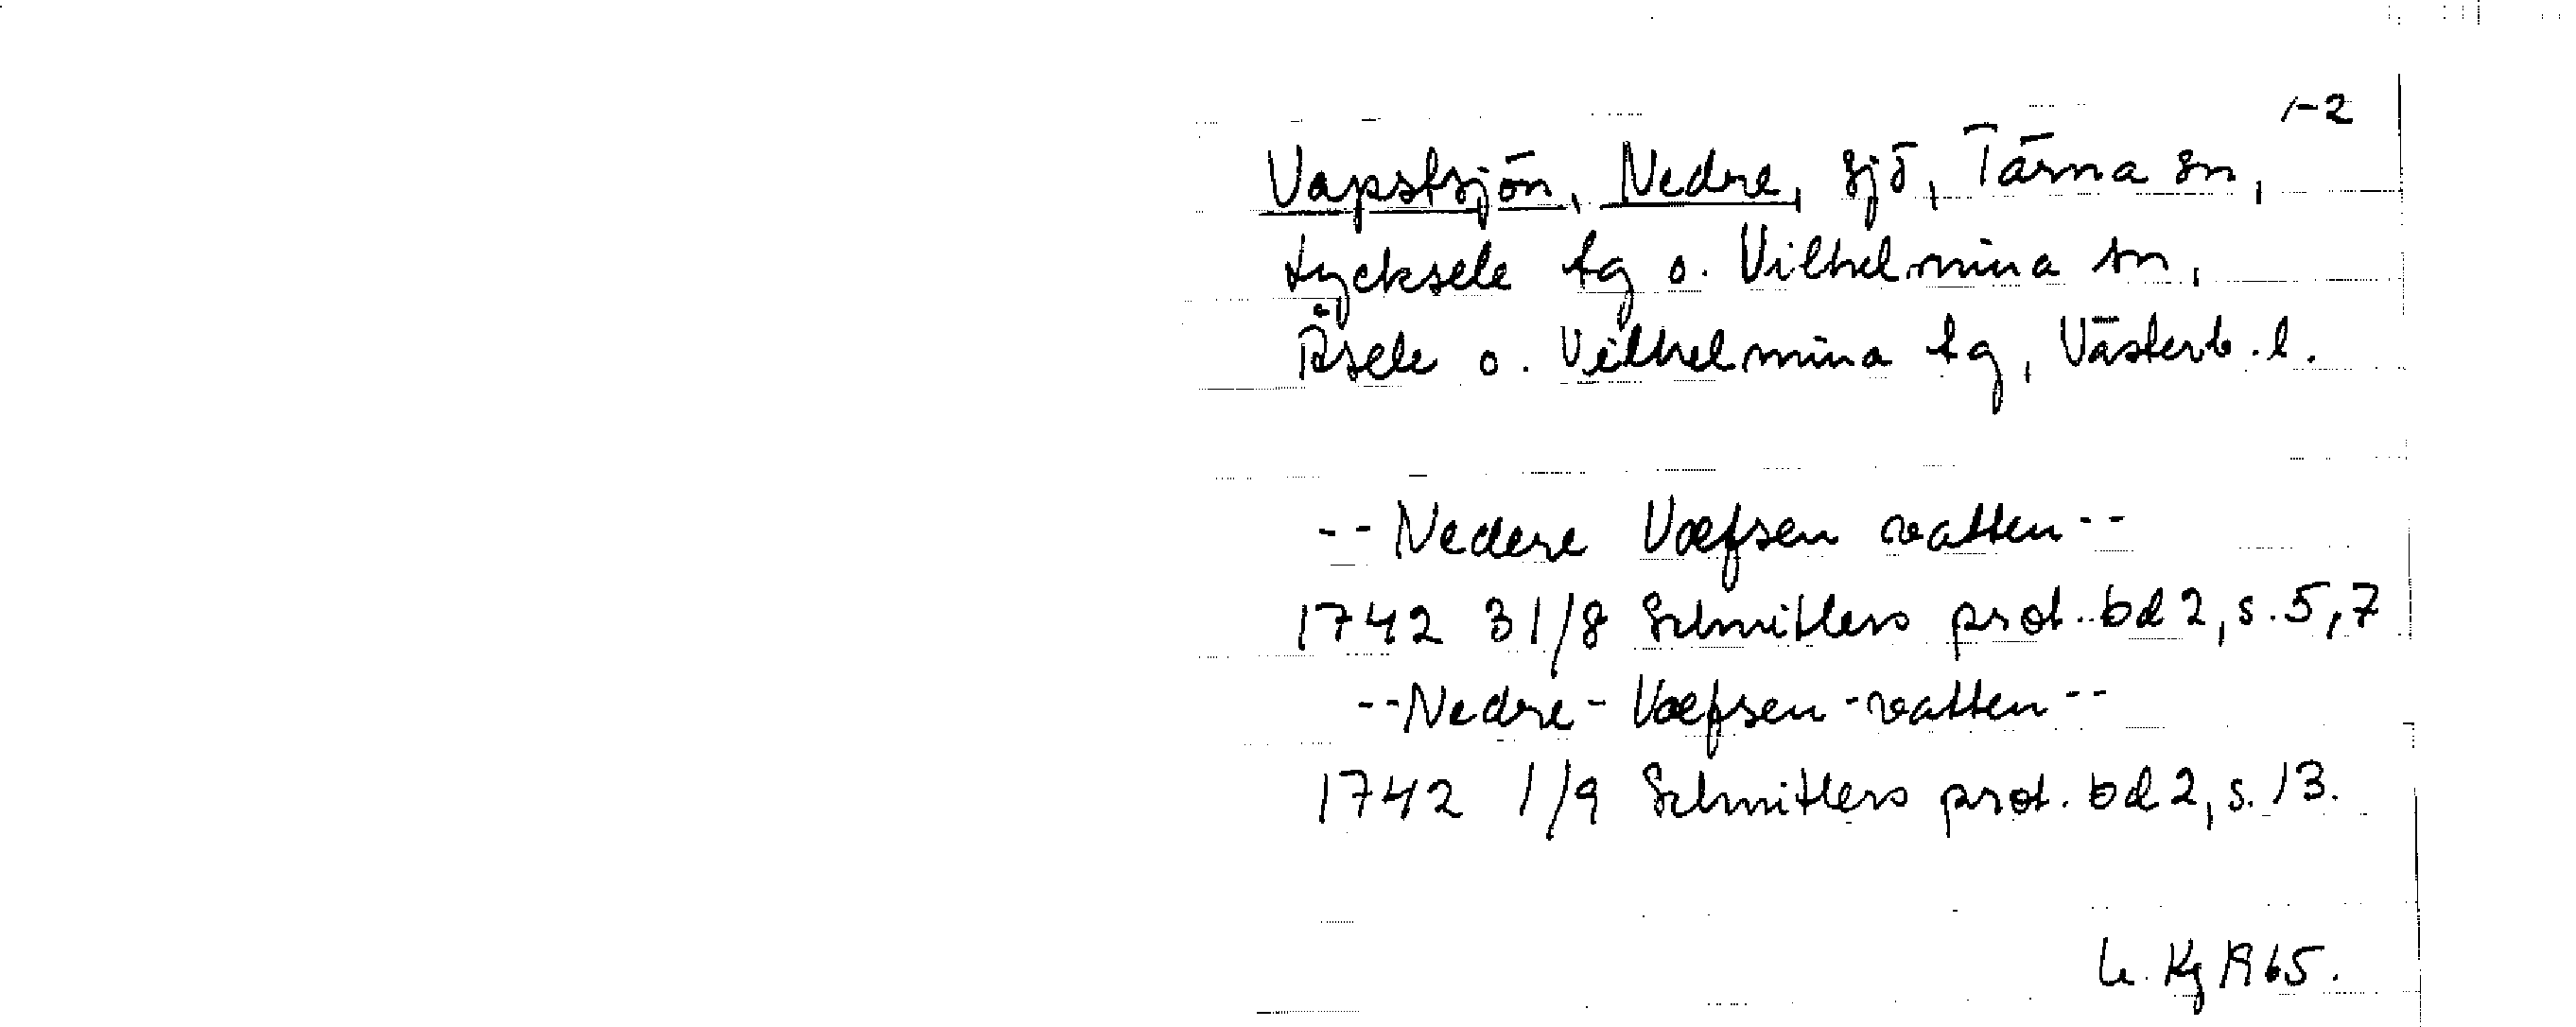 1-2
Vapstsjön, Nedre, sjö, Tärna sn,
Lycksele tg o. Vilhelmina sn,
Åsele o. Vilhelmina tg, Västerb. l.
-- Nedere Væfsen vatten --
1742 31/8 Schnitlers prot. bd 2, s. 5, 7
-- Nedre - Væfsen - vatten --
1742 1/9 Schnitlers prot. bd 2, s. 13.
Kg 1965.